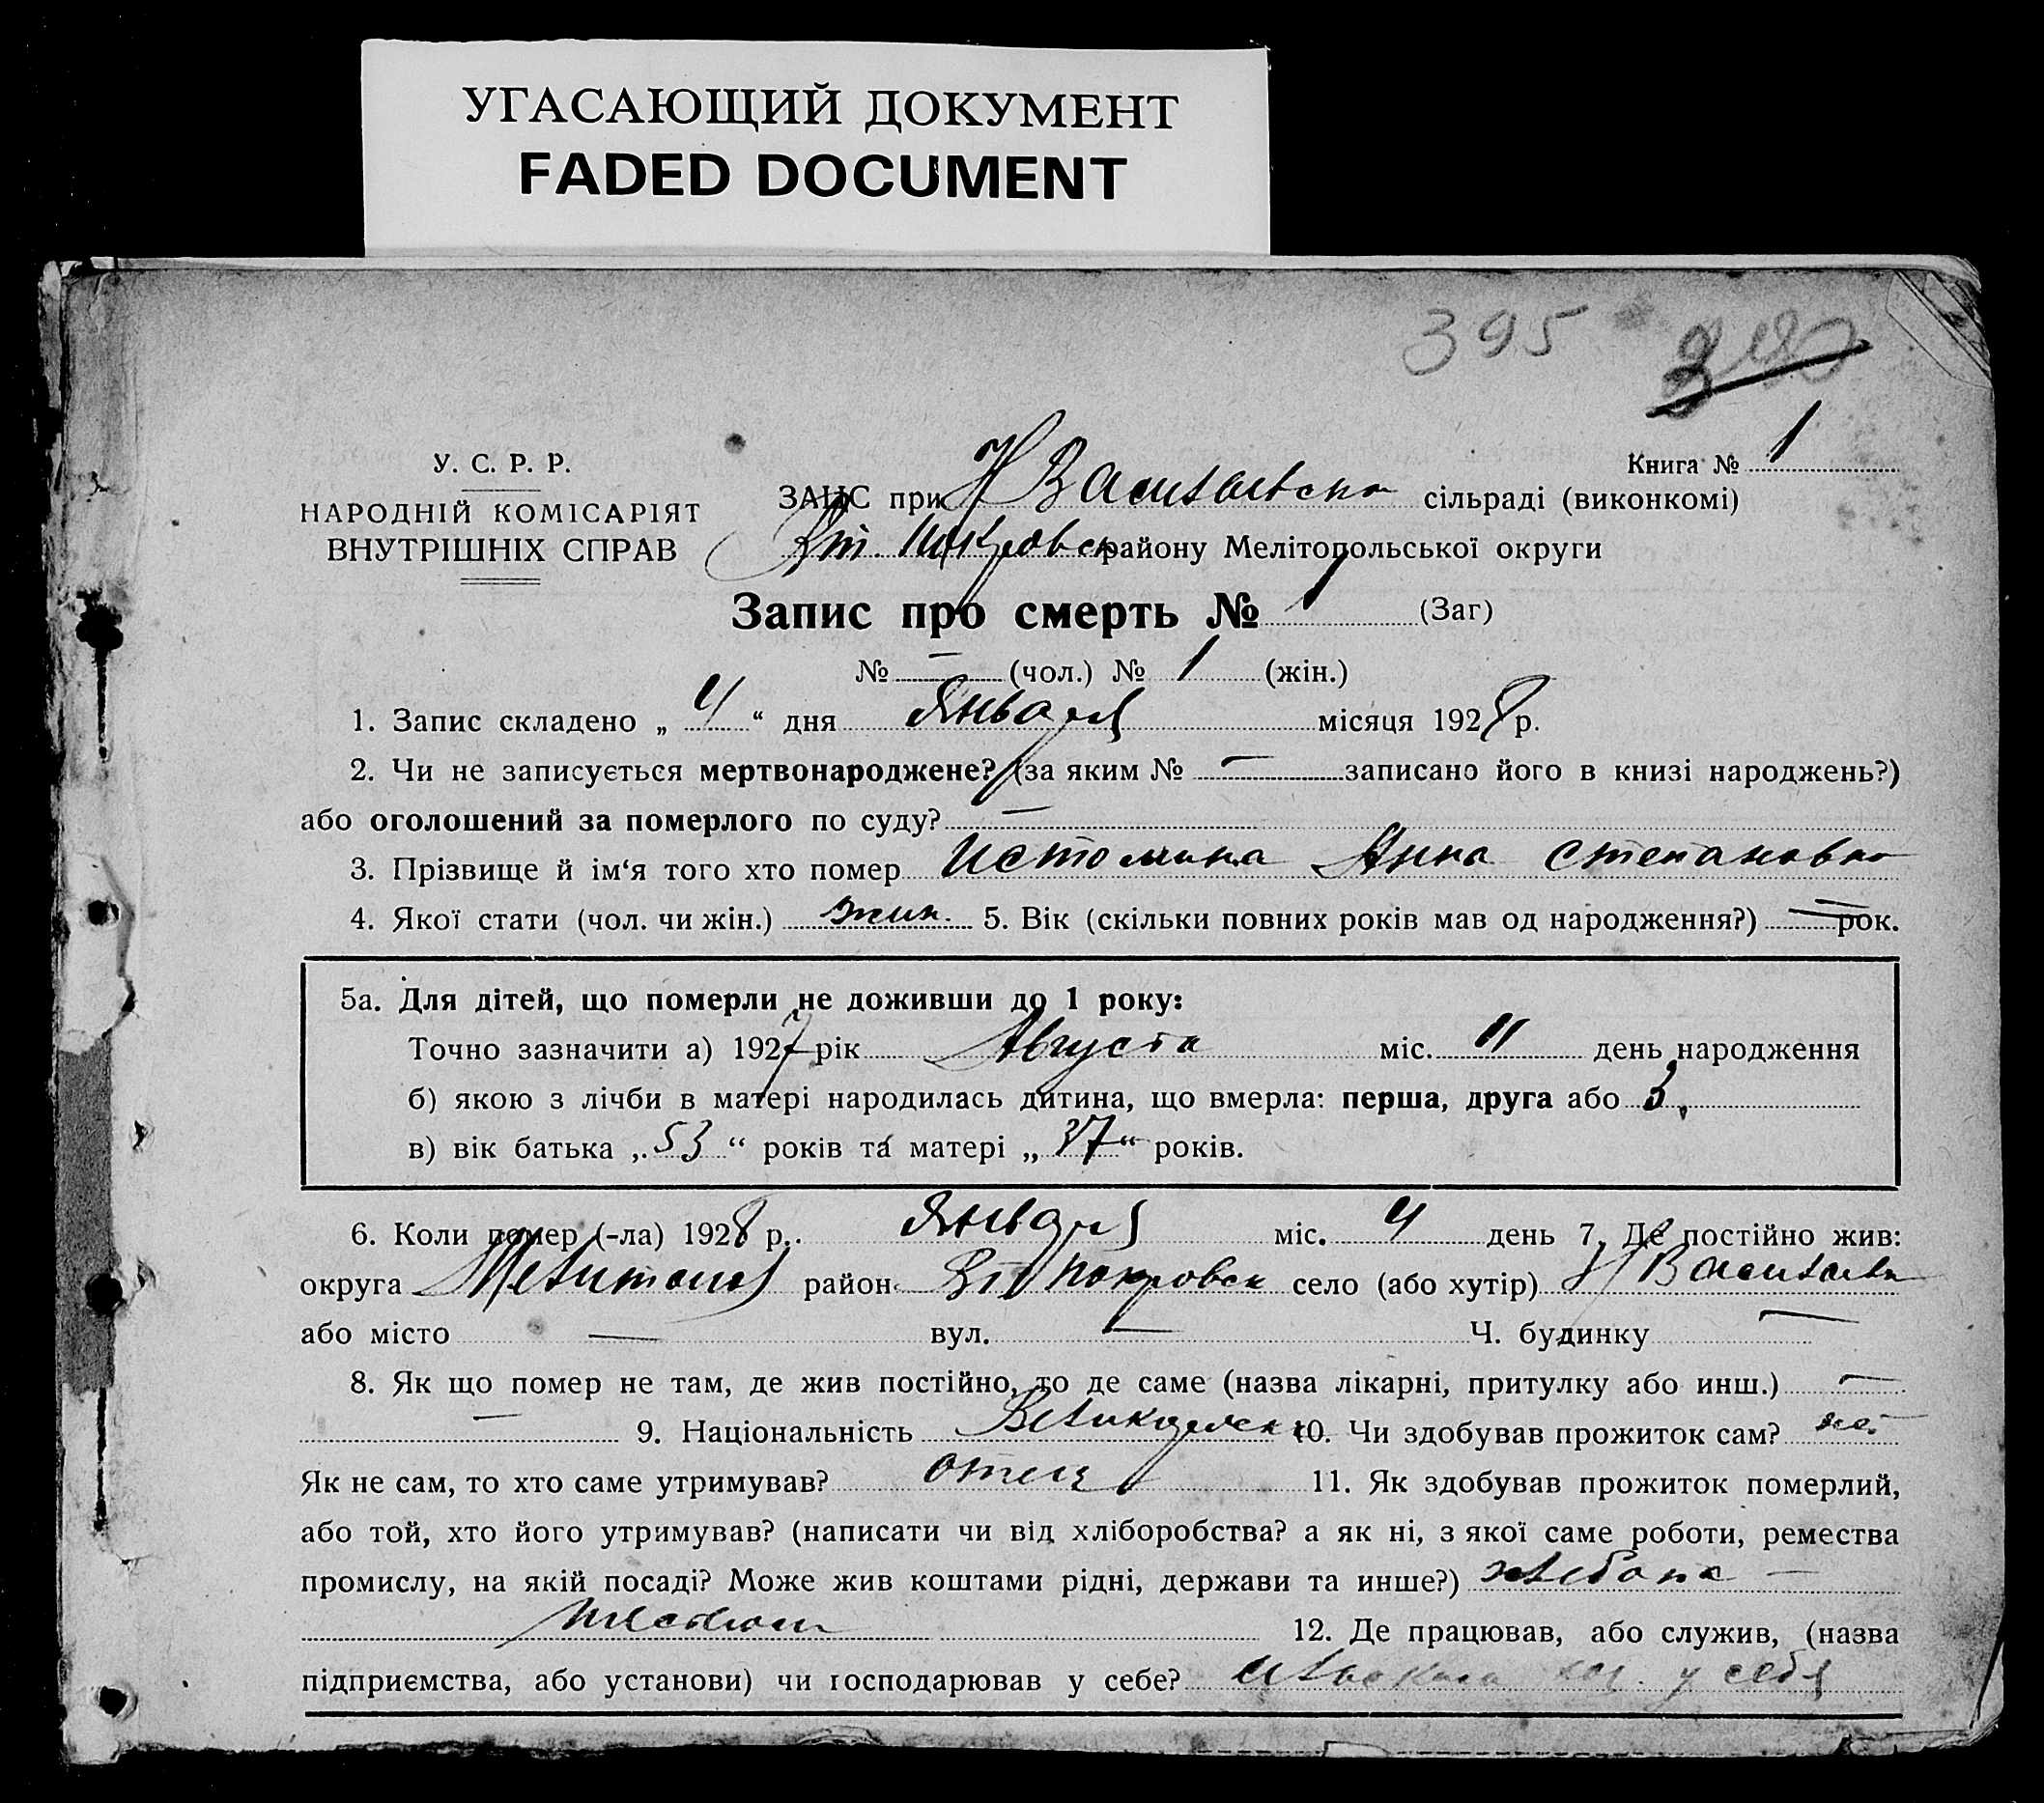 УГАСАЮЩИЙ ДОКУМЕНТ
FADED DOCUMENT
395
Книга № 1
У. С. Р. Р.
НАРОДНІЙ КОМІСАРІЯТ
ВНУТРІШНІХ СПРАВ
ЗАНС при Н Васильевск сільраді (виконкомі)
Вт. Покровск району Мелітопольської округи
Запис про смерть № 1 (Заг)
№ — (чол.) № 1 (жін.)
1. Запис складено „ 4 “ дня Января місяця 1928 р.
2. Чи не записується мертвонароджене? (за яким № — записано його в книзі народжень?)
або оголошений за померлого по суду? —
3. Прізвище й ім‘я того хто помер Истомина Анна Степановна
4. Якої стати (чол. чи жін.) жин. 5. Вік (скільки повних років мав од народження?) — рок.
5а. Для дітей, що померли не доживши до 1 року:
Точно зазначити а) 1927 рік Августа міс. 11 день народження
б) якою з лічби в матері народилась дитина, що вмерла: перша, друга або 3.
в) вік батька „ 53 “ років та матері „ 37 “ років.
6. Коли помер (-ла) 1928 р. Января міс. 4 день 7. Де постійно жив:
округа Мелитопол район Вт Покровск село (або хутір) Н Васильевк
або місто — вул. — Ч. будинку —
8. Як що помер не там, де жив постійно, то де саме (назва лікарні, притулку або инш.) —
— 9. Національність Великорусск 10. Чи здобував прожиток сам? нет
Як не сам, то хто саме утримував? отец 11. Як здобував прожиток померлий,
або той, хто його утримував? (написати чи від хліборобства? а як ні, з якої саме роботи, ремества
промислу, на якій посаді? Може жив коштами рідні, держави та инше?) хлебопа—
шеством 12. Де працював, або служив, (назва
підприємства, або установи) чи господарював у себе? у себя